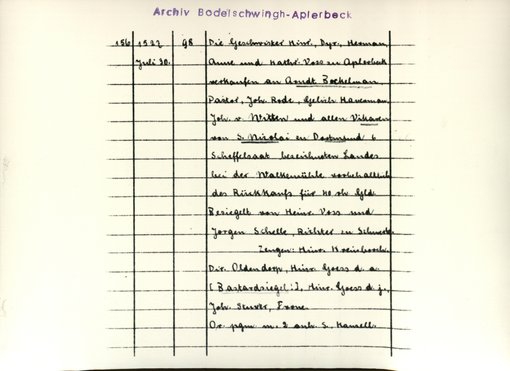 Archiv Bodelschwingh-Aplerbeck
156 1522 98 Die Geschwister Hinr., Dyr., Herman,
Juli 30. Anne und Kathr. Voss zu Aplerbeck
verkaufen an Arndt Bockelman
Pastor, Joh. Rode, Gelich Haveman
Joh. v. Wetten und allen Vikaren
von S. Nicolai zu Dortmund 6
Scheffelsaat bezeichneten Landes
bei der Walkemühle vorbehaltlich
des Rückkaufs für 40 rh. Gld.
Besiegelt von Heinr. Voss und
Jorgen Schelle, Richter zu
Zeugen: Hinr.
Dir. Oldendorp, Hinr. Goess d. a.
[Bastardsiegel:], Hinr. Goess d. j.
Joh. Frone.
Or. pgm. m. 2 anh. S.